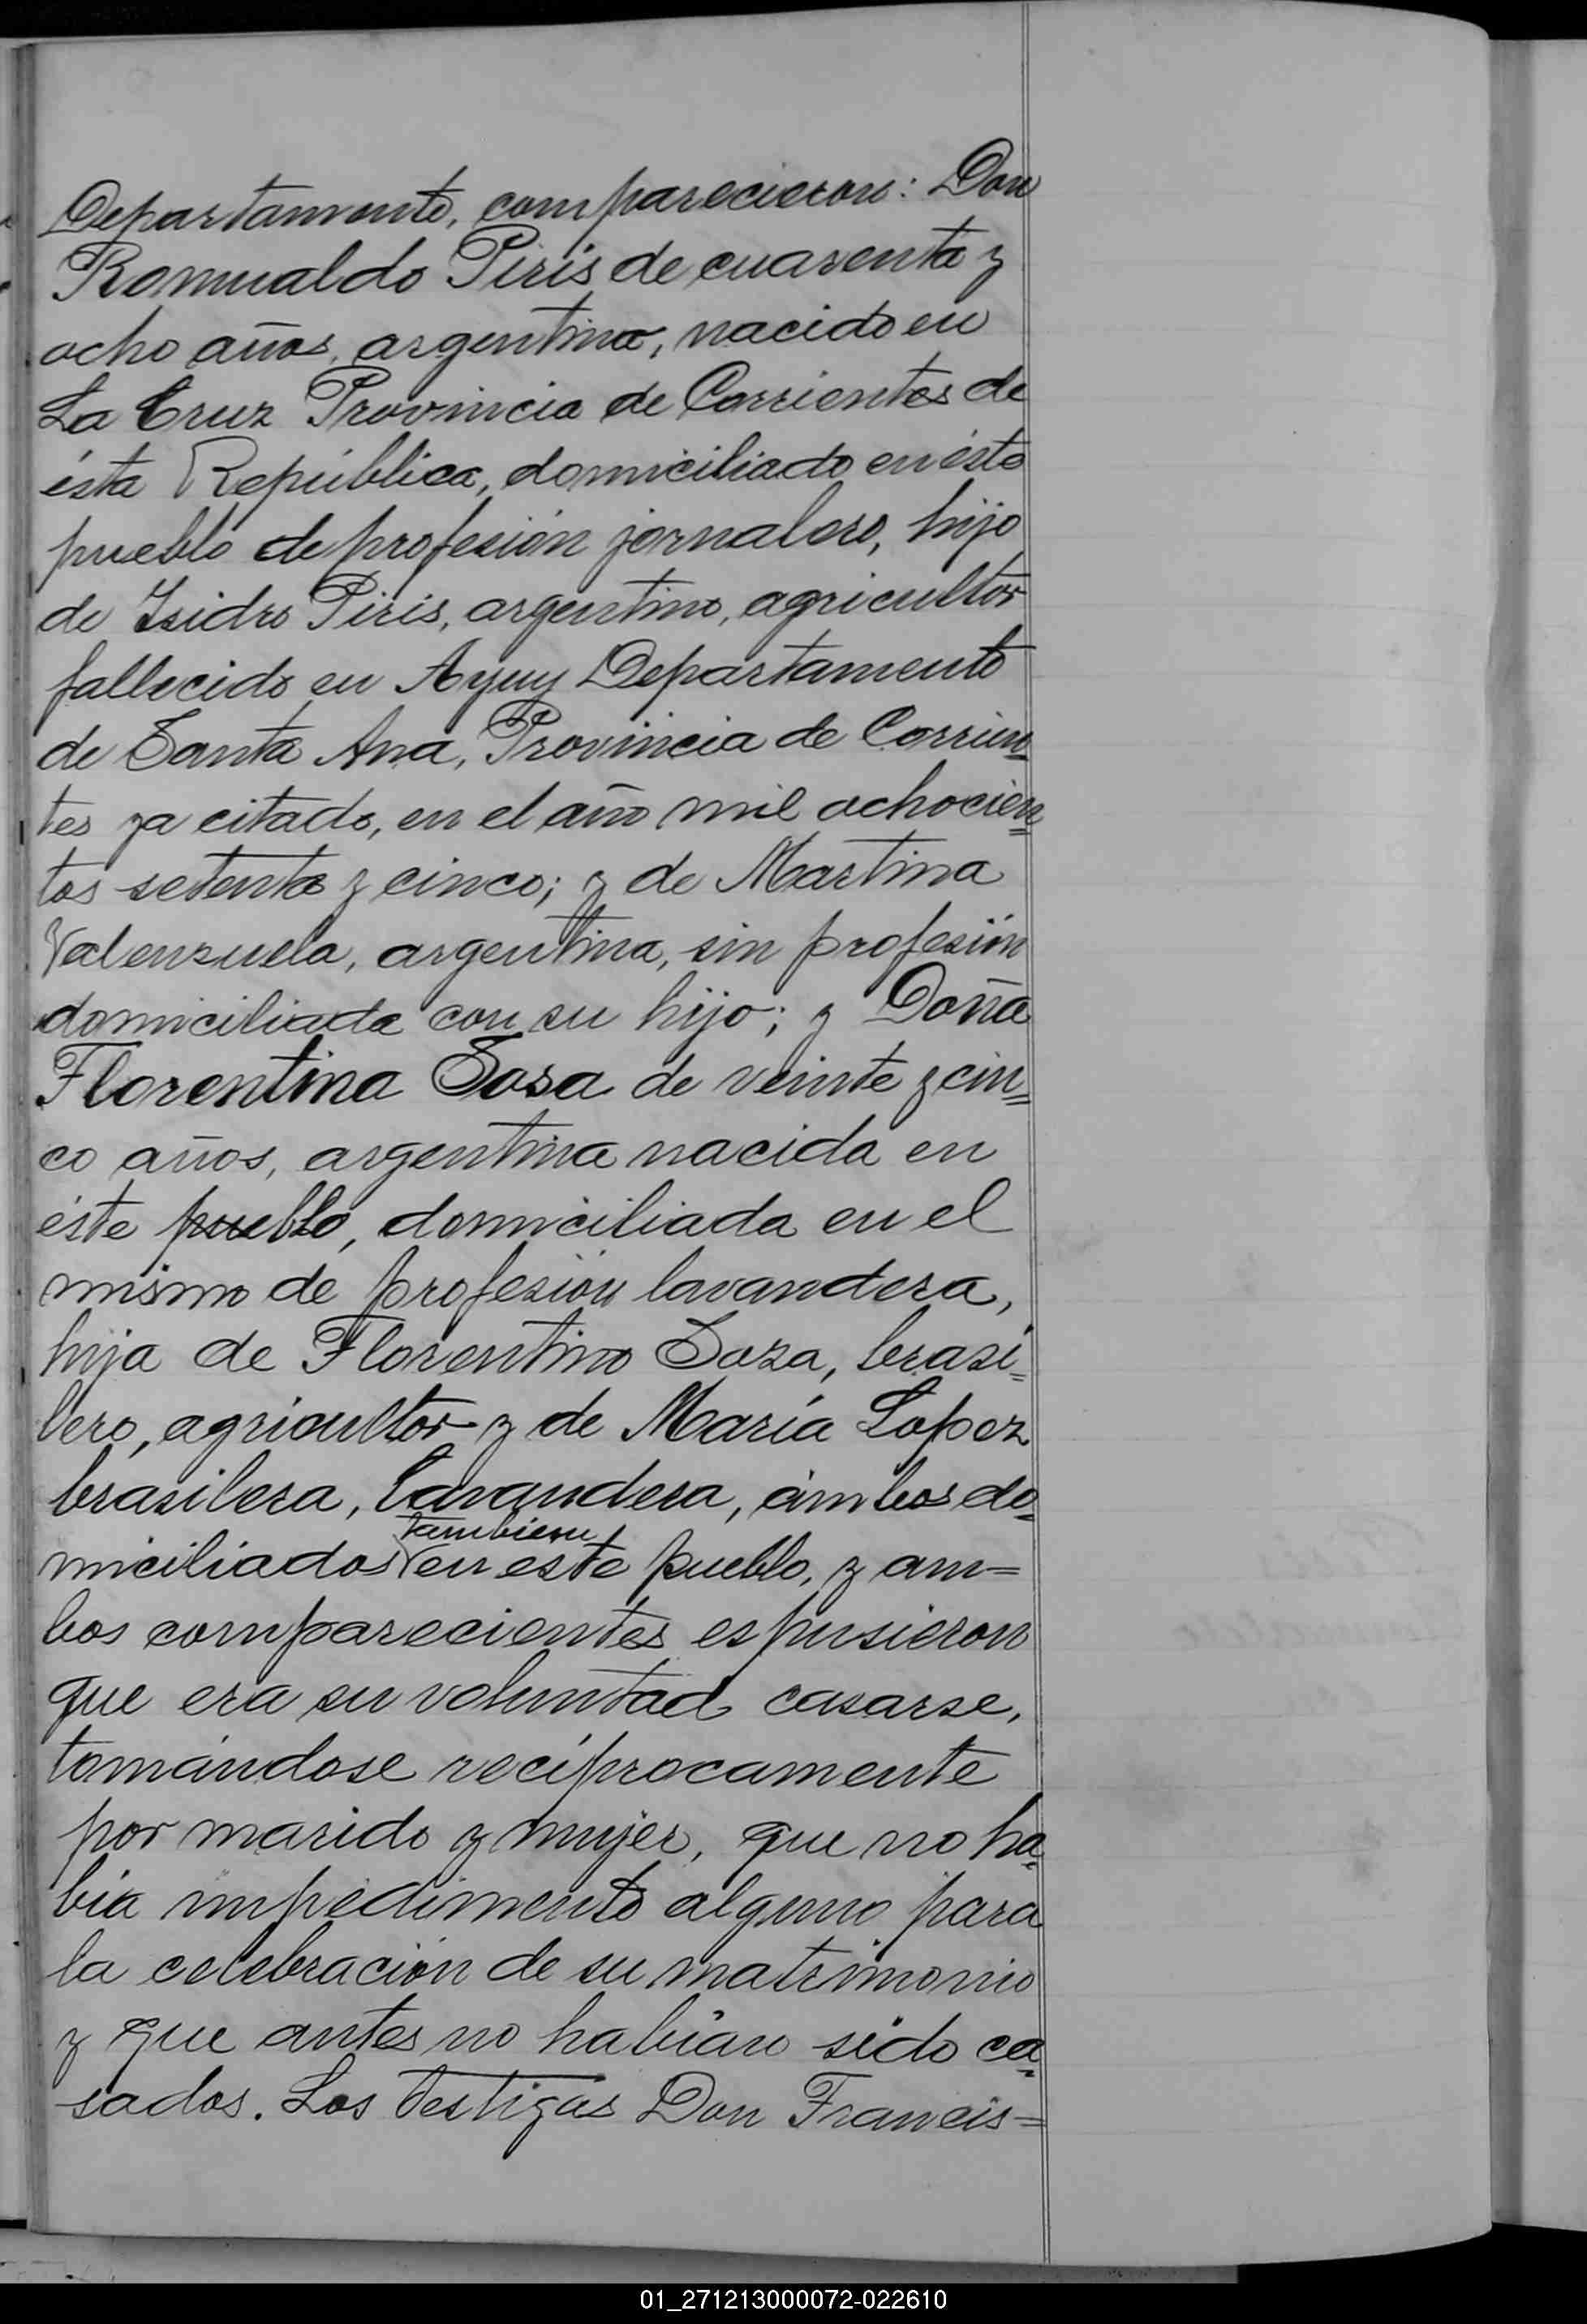 Departamento, comparecieron: Don
Romualdo Piris de cuarenta y
ocho años, argentino, nacido en
La Cruz Provincia de Corrientes de
ésta República, domiciliado en éste
pueblo de profesión jornalero, hijo
de Isidro Piris, argentino, agricultor
fallecido en Ayuy Departamento
de Santa Ana, Provincia de Corrien=
tes ya citado, en el año mil ochocien=
tos setenta y cinco; y de Martina
Valenzuela, argentina, sin profesión
domiciliada con su hijo; y Doña
Florentina Sosa de veinte y cin=
co años, argentina nacida en
éste pueblo, domiciliada en el
mismo de profesión lavandera,
hija de Florentino Soza, brasi=
lero, agricultor y de María Lopez
brasilera, lavandera, ámbos do=
tambien
miciliados en este pueblo, y am=
bos comparecientes espusieron
que era su voluntad casarse,
tomándose recíprocamente
por marido y mujer, que no ha=
bía impedimento alguno para
la celebración de su matrimonio
y que antes no habían sido ca=
sados. Los testigos Don Francis=
01_271213000072-022610